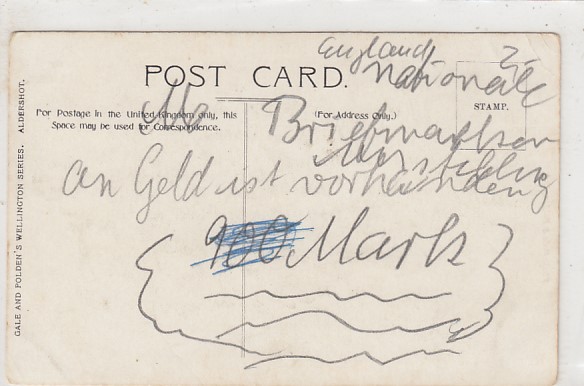 England
Nationale
POST CARD.
STAMP.
For Postage in the United Kingdom only, this
Space may be used for Correspondence.
(For Address Only.)
Briefmarken
an Geld ist vorhanden
900 Mark
GALE AND POLDEN'S WELLINGTON SERIES. ALDERSHOT.